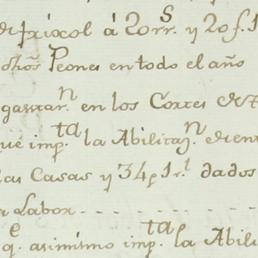 de frixol á 20 rr.s y 20 f.
dhõs Peones en todo el año
gastar.n en los Cortes de
que imp.ta la Abilitaz.n de
las Casas y 34 p 1 r.l dados
Labor
q.e asimismo imp.ta la Abili